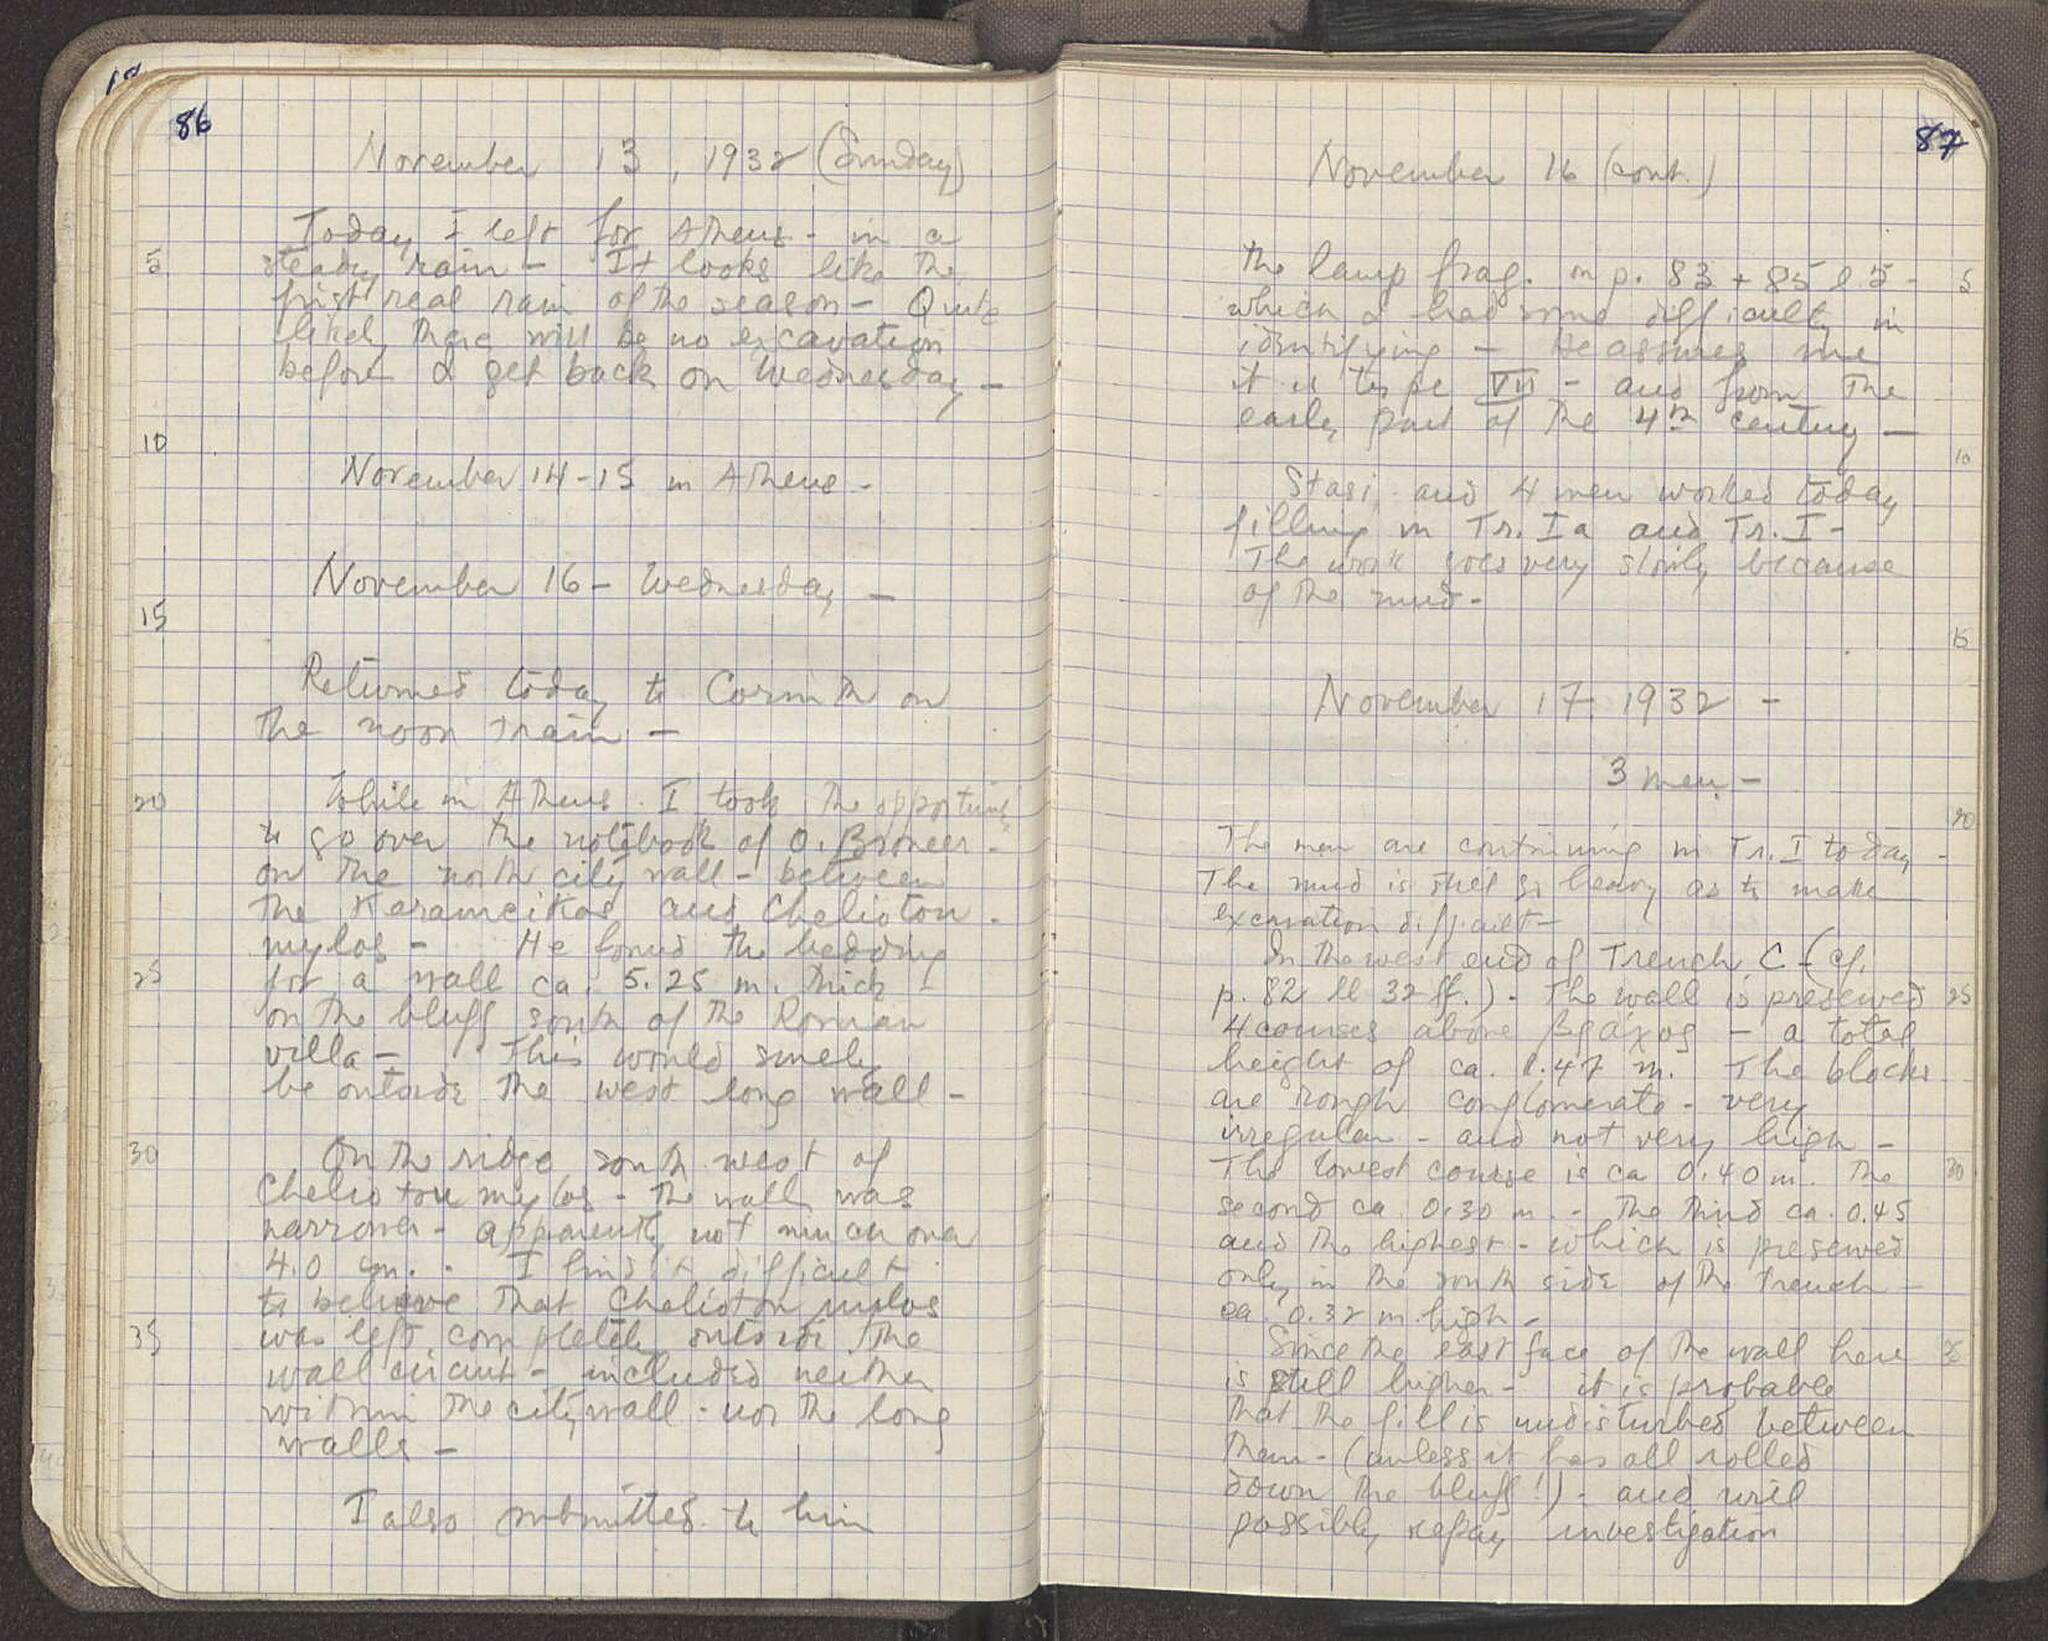 86
November 13, 1932 (Sunday)
Today I left for Athens - in a
5
steady rain - It looks like the
first real rain of the season - Quite
likely there will be no excavation
before I get back on Wednesday -
10
November 14-15 in Athens -
November 16 - Wednesday -
15
Returned today to Corinth on
the noon train -
20
While in Athens I took the opportunity
to go over the notebook of O. Broneer -
on the north city wall - between
the Kerameikos and Cheliotou -
mylos - He found the bedding
25
for a wall ca. 5.25 m. thick -
on the bluff south of the Roman
villa - This would surely
be outside the west long wall -
30
On the ridge south west of
Cheliotou mylos - the wall was
narrower - apparently not much over
4.0 m. - I find it difficult
to believe that Cheliotou mylos
35
was left completely outside the
wall circuit - included neither
within the city wall - nor the long
walls -
I also submitted to him
87
November 16 (cont.)
the lamp frag. on p. 83 + 85 l 5 -
5
which I had some difficulty in
identifying - He assures me
it is type VII - and from the
early part of the 4th century -
10
Stasi and 4 men worked today
filling in Tr. Ia and Tr. I -
The work goes very slowly because
of the mud -
15
November 17, 1932 -
3 men -
20
The men are continuing in Tr. I today -
The mud is still so heavy as to make
excavation difficult -
In the west end of Trench C - (cf.
p. 82 ll 32 ff.) - The wall is preserved
25
4 courses above βράχος - a total
height of ca. 1.47 m. The blocks
are rough conglomerate - very
irregular - and not very high -
The lowest course is ca 0.40 m. The
30
second ca. 0.30 m. - The third ca. 0.45
and the highest - which is preserved
only in the south side of the trench -
ca. 0.32 m. high -
Since the east face of the wall here
35
is still higher - it is probable
that the fill is undisturbed between
them - (unless it has all rolled
down the bluff!) - and will
possibly repay investigation